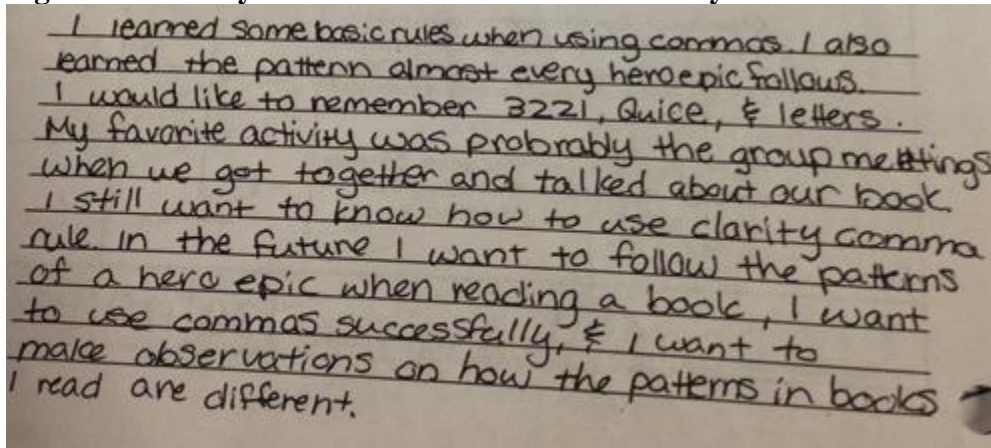 I learned some basic rules when using commas. I also
learned the pattern almost every hero epic follows.
I would like to remember 3221, Quice, & letters.
My favorite activity was probrably the group meetings
when we got together and talked about our book
I still want to know how to use clarity comma
rule. In the future I want to follow the patterns
of a hero epic when reading a book, I want
to use commas successfully, & I want to
make observations on how the patterns in books
I read are different.